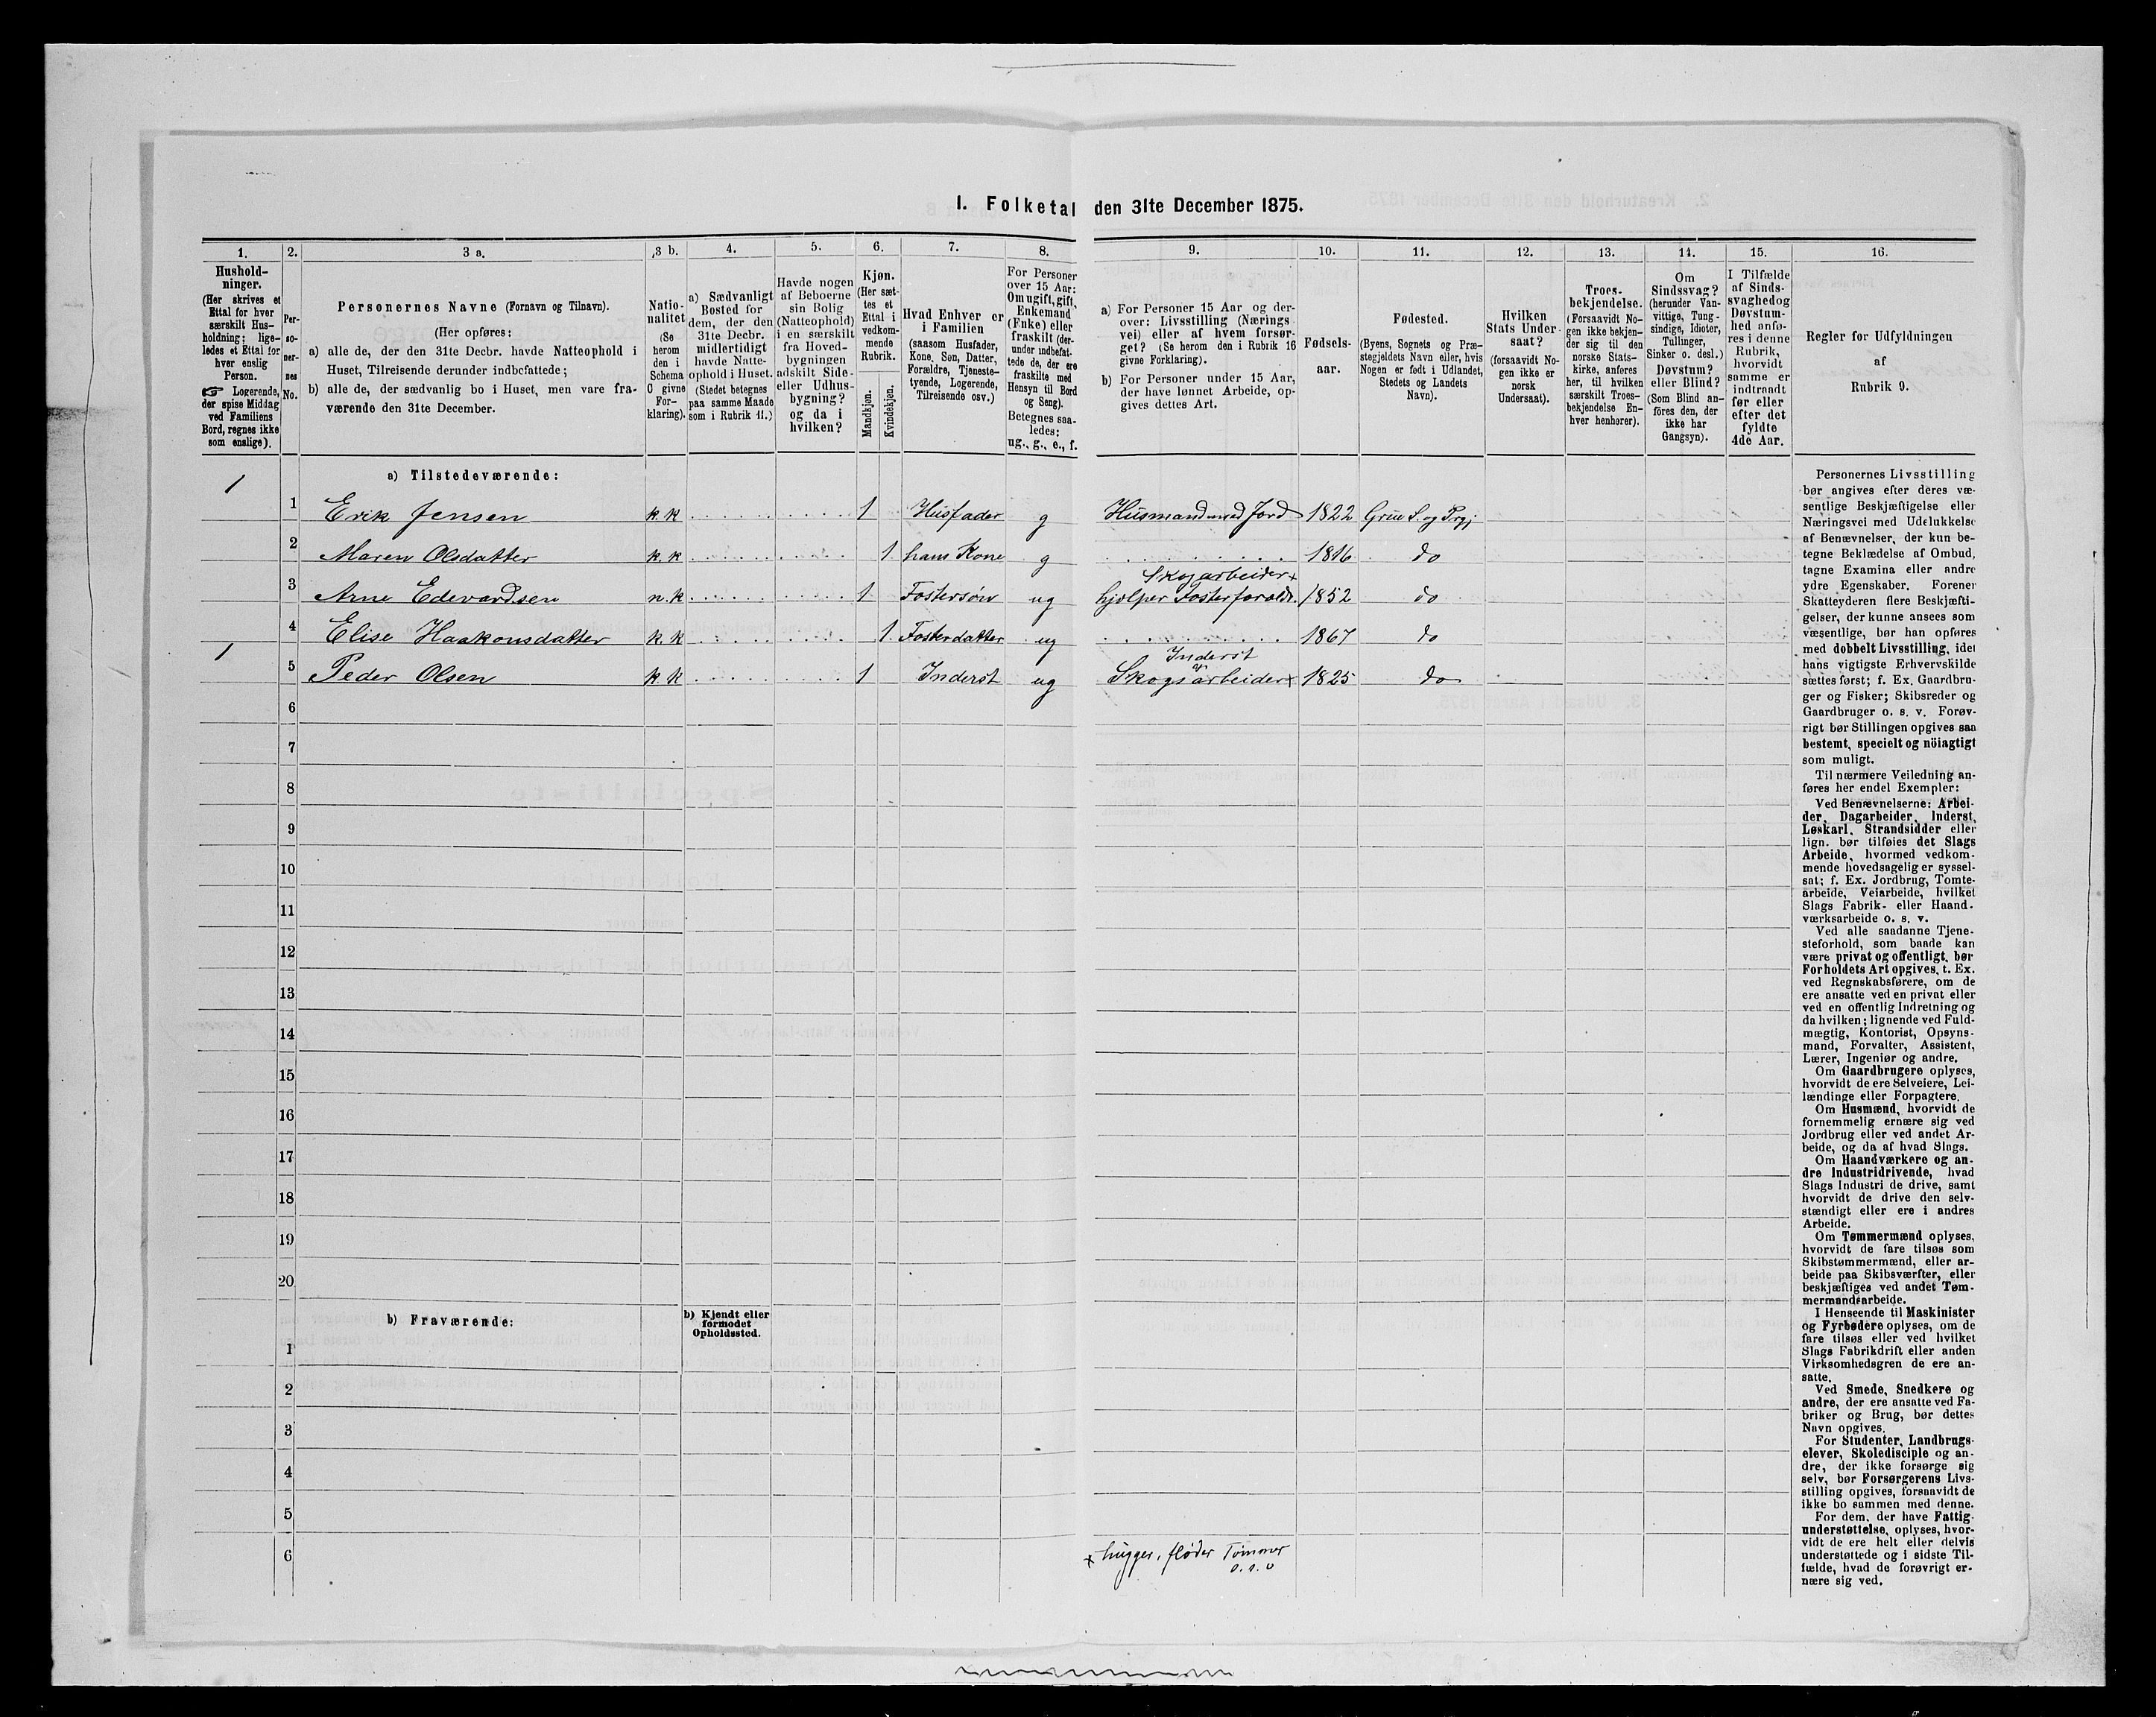 I. Folketal den 31te December 1875.
1. 2. 3 a. 3 b. 4. 5. 6. 7. 8. 9. 10. 11. 12. 13. 14. 15. 16.
Hushold-
ninger.
(Her skrives et
Ettal for hver
særskilt Hus-
holdning; lige-
ledes et Ettal for
hver enslig
Person.
☞ Logerende,
der spise Middag
ved Familiens
Bord, regnes ikke
som enslige).
Per-
so-
ner-
nes
No.
Personernes Navne (Fornavn og Tilnavn).
(Her opføres:
a) alle de, der den 31te Decbr. havde Natteophold i
Huset, Tilreisende derunder indbefattede;
b) alle de, der sædvanlig bo i Huset, men vare fra-
værende den 31te December.
Natio-
nalitet
(Se
herom
den i
Schema
O givne
For-
klaring).
a) Sædvanligt
Bosted for
dem, der den
31te Decbr.
midlertidigt
havde Natte-
ophold i Huset.
(Stedet betegnes
paa samme Maade
som i Rubrik 11.)
Havde nogen
af Beboerne
sin Bolig
(Natteophold)
i en særskilt
fra Hoved-
bygningen
adskilt Side-
eller Udhus-
bygning?
og da i
hvilken?
Kjøn.
(Her sæt-
tes et
Ettal i
vedkom-
mende
Rubrik.
Mandkjøn.
Kvindekjøn.
Hvad Enhver er
i Familien
(saasom Husfader,
Kone, Søn, Datter,
Forældre, Tjeneste-
tyende, Logerende,
Tilreisende osv.)
For Personer
over 15 Aar:
Om ugift, gift,
Enkemand
(Enke) eller
fraskilt (der-
under indbefat-
tede de, der ere
fraskilte med
Hensyn til Bord
og Seng).
Betegnes saa-
ledes:
ug., g., e., f.
a) For Personer 15 Aar og der-
over: Livsstilling (Nærings-
vei) eller af hvem forsør-
get? (Se herom den i Rubrik 16
givne Forklaring).
b) For Personer under 15 Aar,
der have lønnet Arbeide, op-
gives dettes Art.
Fødsels-
aar.
Fødested.
(Byens, Sognets og Præ-
stegjeldets Navn eller, hvis
Nogen er født i Udlandet,
Stedets og Landets
Navn).
Hvilken
Stats Under-
saat?
(forsaavidt No-
gen ikke er
norsk
Undersaat).
Troes-
bekjendelse.
(Forsaavidt No-
gen ikke bekjen-
der sig til den
norske Stats-
kirke, anføres
her, til hvilken
særskilt Troes-
bekjendelse En-
hver henhører).
Om
Sindssvag?
(herunder Van-
vittige, Tung-
sindige, Idioter,
Tullinger,
Sinker o. desl.)
Døvstum?
eller Blind?
(Som Blind an-
føres den, der
ikke har
Gangsyn).
I Tilfælde
af Sinds-
svaghed og
Døvstum-
hed anfø-
res i denne
Rubrik,
hvorvidt
samme er
indtraadt
før eller
efter det
fyldte
4de Aar.
Regler for Udfyldningen
af
Rubrik 9.
a) Tilstedeværende:
1
1 Erik Jensen k.k 1 Husfader g Husmand med Jord 1822 Grue S. og Prgj
2 Maren Olsdatter k.k 1 hans Kone g 1816 do
Skogarbeider x
3 Arne Edevardsen n.k 1 Fostersøn ug hjelper Fosterforældr. 1852 do
4 Elise Haakonsdatter k.k 1 Fosterdatter ug 1867 do
1
Inderst
5 Peder Olsen k k 1 Inderst ug Skogsarbeider x 1825 do
6
7
8
9
10
11
12
13
14
15
16
17
18
19
20
b) Fraværende:
b) Kjendt eller
formodet
Opholdssted.
1
2
3
4
5
6
x hugger, fløder Tømmer
o.s.v
Personernes Livsstilling
bør angives efter deres væ-
sentlige Beskjæftigelse eller
Næringsvei med Udelukkelse
af Benævnelser, der kun be-
tegne Beklædelse af Ombud,
tagne Examina eller andre
ydre Egenskaber. Forener
Skatteyderen flere Beskjæfti-
gelser, der kunne ansees som
væsentlige, bør han opføres
med dobbelt Livsstilling, idet
hans vigtigste Erhvervskilde
sættes først; f. Ex. Gaardbru-
ger og Fisker; Skibsreder og
Gaardbruger o. s. v. Forøv-
rigt bør Stillingen opgives saa
bestemt, specielt og nöiagtigt
som muligt.
Til nærmere Veiledning an-
føres her endel Exempler:
Ved Benævnelserne: Arbei-
der, Dagarbeider, Inderst,
Løskarl, Strandsidder eller
lign. bør tilføies det Slags
Arbeide, hvormed vedkom-
mende hovedsagelig er syssel-
sat; f. Ex. Jordbrug, Tomte-
arbeide, Veiarbeide, hvilket
Slags Fabrik- eller Haand-
værksarbeide o. s. v.
Ved alle saadanne Tjene-
steforhold, som baade kan
være privat og offentligt, bør
Forholdets Art opgives, t. Ex.
ved Regnskabsførere, om de
ere ansatte ved en privat eller
ved en offentlig Indretning og
da hvilken; lignende ved Fuld-
mægtig, Kontorist, Opsyns-
mand, Forvalter, Assistent,
Lærer, Ingeniør og andre.
Om Gaardbrugere oplyses,
hvorvidt de ere Selveiere, Lei-
lændinge eller Forpagtere.
Om Husmænd, hvorvidt de
fornemmelig ernære sig ved
Jordbrug eller ved andet Ar-
beide, og da af hvad Slags.
Om Haandværkere og an-
dre Industridrivende, hvad
Slags Industri de drive, samt
hvorvidt de drive den selv-
stændigt eller ere i andres
Arbeide.
Om Tømmermænd oplyses,
hvorvidt de fare tilsøs som
Skibstømmermænd, eller ar-
beide paa Skibsværfter, eller
beskjæftiges ved andet Tøm-
mermandsarbeide.
I Henseende til Maskinister
og Fyrbødere oplyses, om de
fare tilsøs eller ved hvilket
Slags Fabrikdrift eller anden
Virksomhedsgren de ere an-
satte.
Ved Smede, Snedkere og
andre, der ere ansatte ved Fa-
briker og Brug, bør dettes
Navn opgives.
For Studenter, Landbrugs-
elever, Skoledisciple og an-
dre, der ikke forsørge sig
selv, bør Forsørgerens Livs-
stilling opgives, forsaavidt de
ikke bo sammen med denne.
For dem, der have Fattig-
understøttelse, oplyses, hvor-
vidt de ere helt eller delvis
understøttede og i sidste Til-
fælde, hvad de forøvrigt er-
nære sig ved.